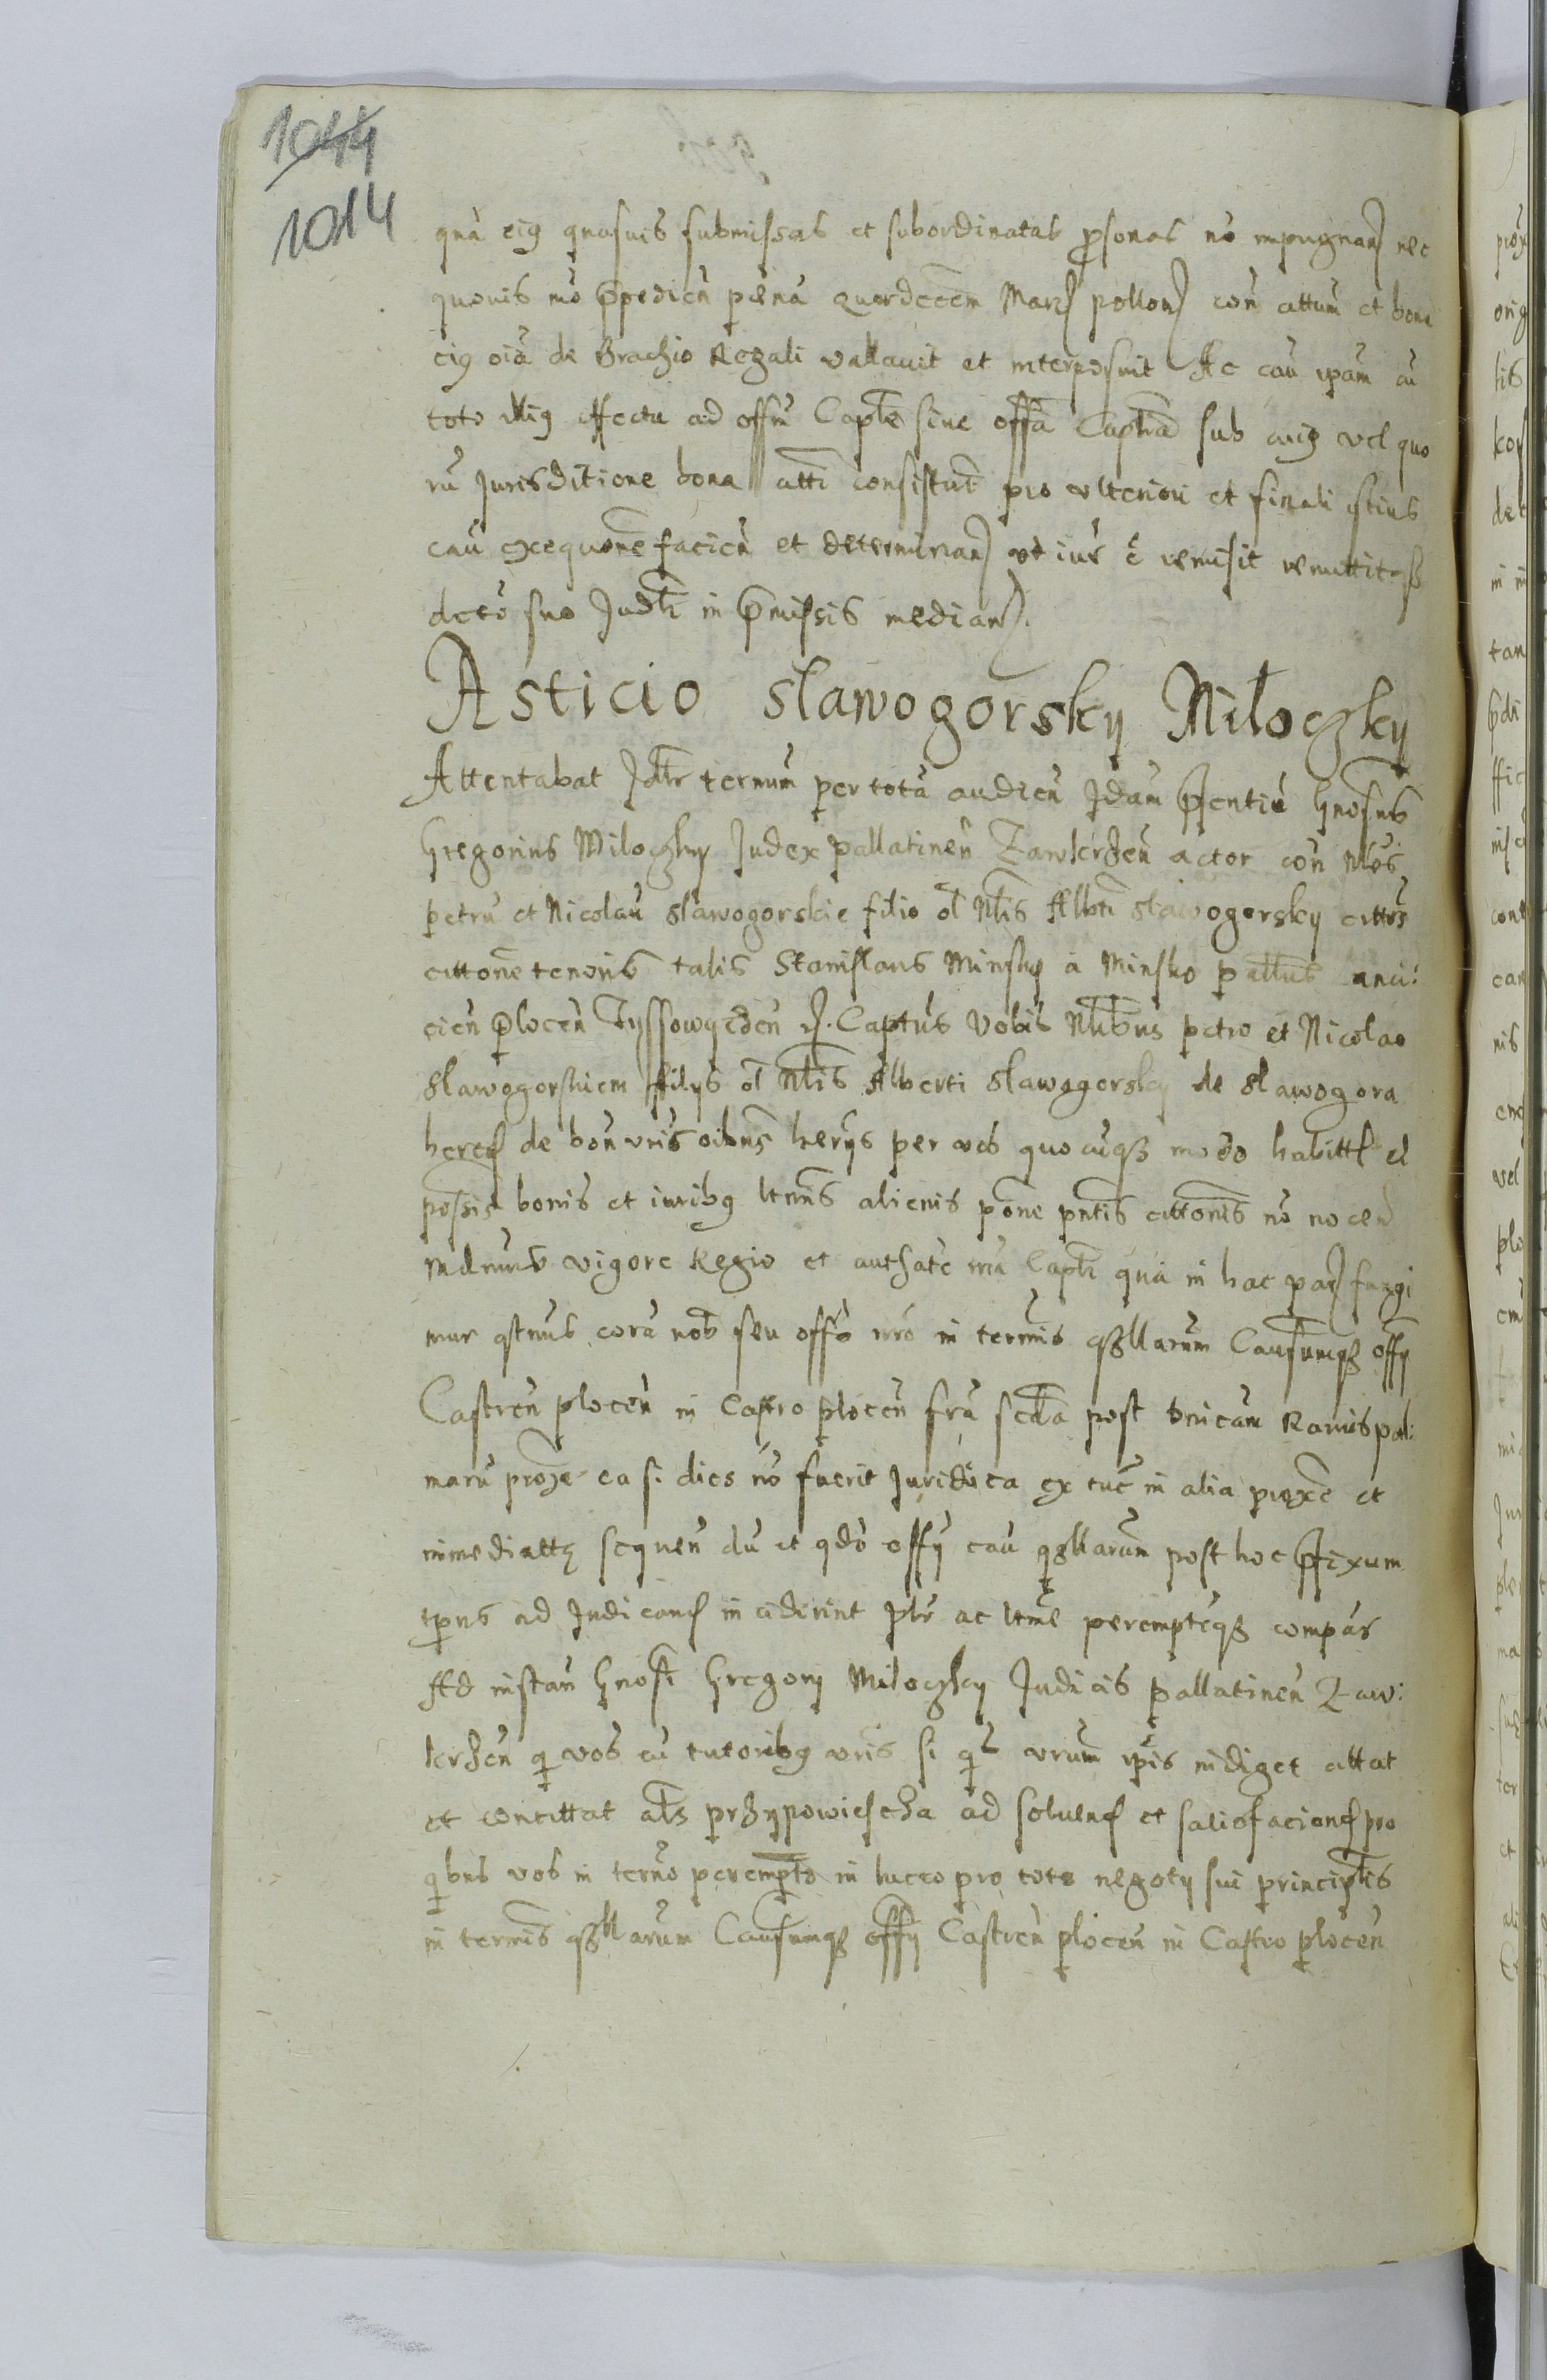 1044
1014
qua eig quasuis submissas et subordinatas psonas no impugnan nec
quouis mo ppedien pena quordecem Marc pollon con attum et bona
eig oia de Brachio Regali vallauit et interposuit Ac cau ipam cu
toto illig effectu ad offm Capte siue offa Captra sub cuig vel quo
ru Jurisditione bona atti consistut pro vlteriori et finali istius
cau exequone facien et determinan vt iur e remisit remittitqz
decto suo Judli in pmissis median.
Asticio slawogorsky Miloczky
Attentabat Jdlr ternum per tota audien Jdam psentiu Gnosus
Gregorius Miloczky Judex pallatinen Zawkrzen actor con Nlos
petru et Nicolau slawogorskie filio ol Nlis Albti slawogorsky cittos
cittone tenoris talis Stanislaus Minsky a Minsko pallus anci:
cien plocen Tyssowyeczen q. Captus Vobis Nlibus petro et Nicolao
slawogorskiem filys ol Nlis Alberti slawogorsky de slawogora
hered de bon vris oibus herys per vos quocuqz modo habitt et
possis bonis et iuribg ltmis alienis pone pntis cittonis no nocen
Mdmus vigore Regio et authate nra Capti qua in hac par fungi
mur qtnus cora nob seu offo nro in termis qzllarum Causumqz offy
Castren plocen in Castro plocen fra secda post dnicam Ramispal:
maru proxe ea si dies no fuerit Juridica ex tuc in alia proxe et
immediatte sequen du et qdo offy cau qzllarum post hoc pfixum
tpus ad Judicand inciderint plr ac ltme perempteqz compars
Ad instan Gnosi Gregory Miloczky Judicis pallatinen Zaw:
krzen q vos cu tutoribg vris si q vrum ipis indiget cittat
et concittat als przypowiescha ad soluend et satisfaciend pro
qbus vos in terno perempto in lucro pro toto negoty sui principlis
in termis qzllarum Causumqz offy Castren plocen in Castro plocen